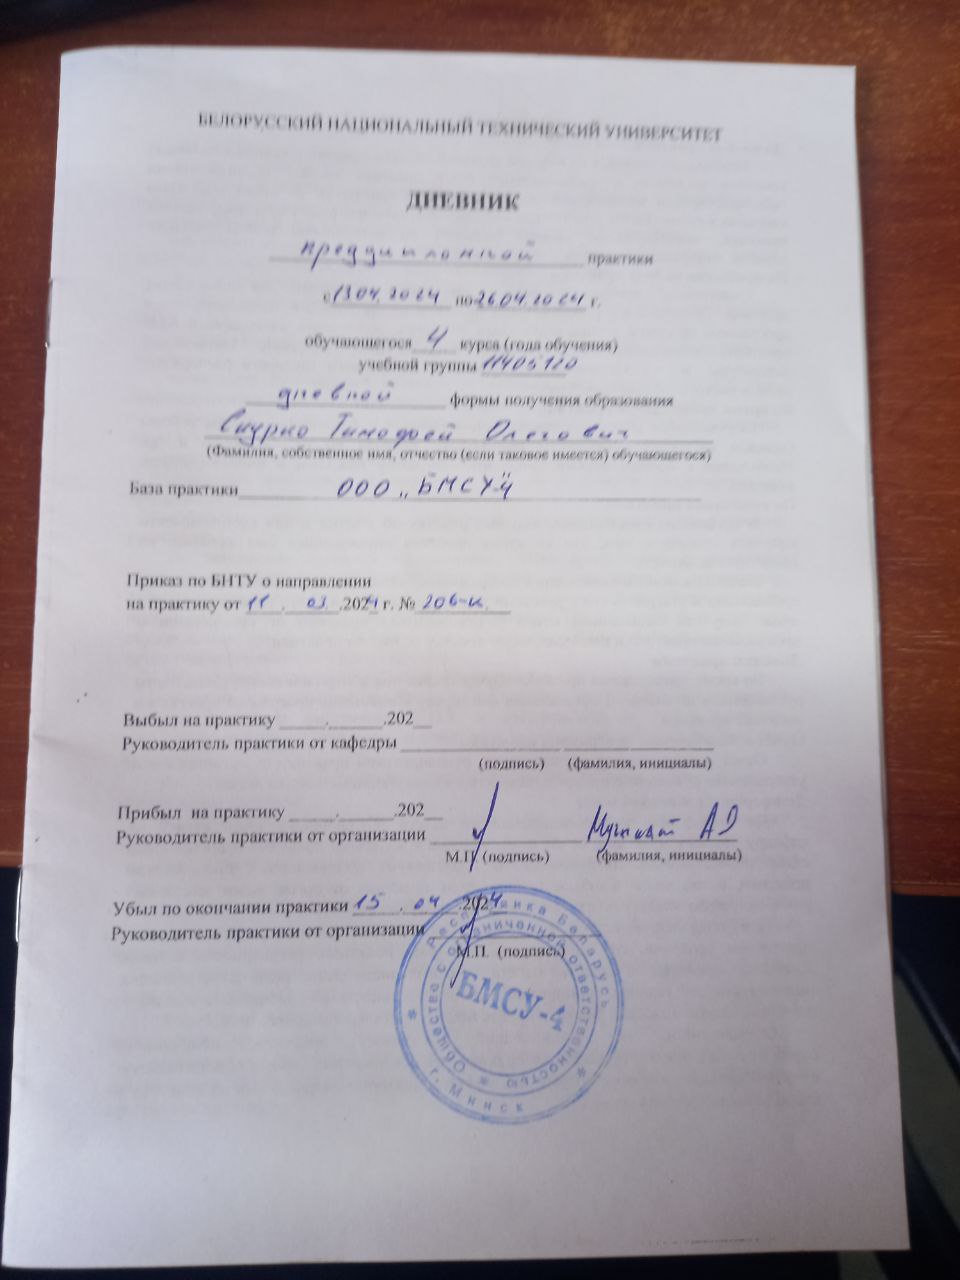 БЕЛОРУССКИЙ НАЦИОНАЛЬНЫЙ ТЕХНИЧЕСКИЙ УНИВЕРСИТЕТ
ДНЕВНИК
преддипломной практики
с 13.04.2024 по 26.04.2024 г.
обучающегося 4 курса (года обучения)
учебной группы 11405120
дневной формы получения образования
Тимофей Олегович
(Фамилия, собственное имя, отчество (если таковое имеется) обучающегося)
База практики ООО „БМСУ-4"
Приказ по БНТУ о направлении
на практику от 11 . 03 .2024 г. № 206-к
Выбыл на практику _____._____.202__
Руководитель практики от кафедры
(подпись) (фамилия, инициалы)
Прибыл на практику _____._____.202__
Руководитель практики от организации
М.П. (подпись) (фамилия, инициалы)
Убыл по окончании практики 15 . 04 .2024
Руководитель практики от организации
М.П. (подпись)
Республика Беларусь
Общество с ограниченной ответственностью
БМСУ-4
г. Минск